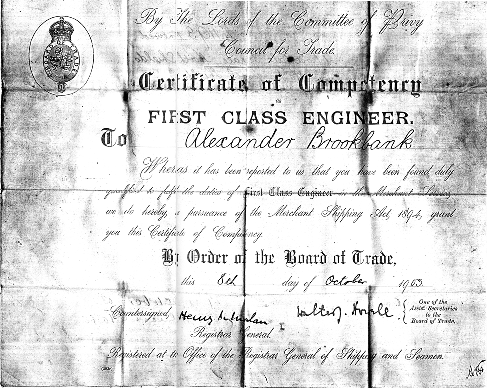 By The Lords of the Committee of Privy
Council for Trade.
Certificate of Competency
AS
FIRST CLASS ENGINEER.
To Alexander Brookbank
Whereas it has been reported to us that you have been found duly
qualified to fulfil the duties of First Class Engineer in the Merchant Service,
we do hereby, in pursuance of the Merchant Shipping Act, 1894, grant
you this Certificate of Competency.
By Order of the Board of Trade,
this 8th day of October 1903.
Countersigned,
Registrar General.
One of the
Asst. Secretaries
to the
Board of Trade.
Registered at the Office of the Registrar General of Shipping and Seamen.